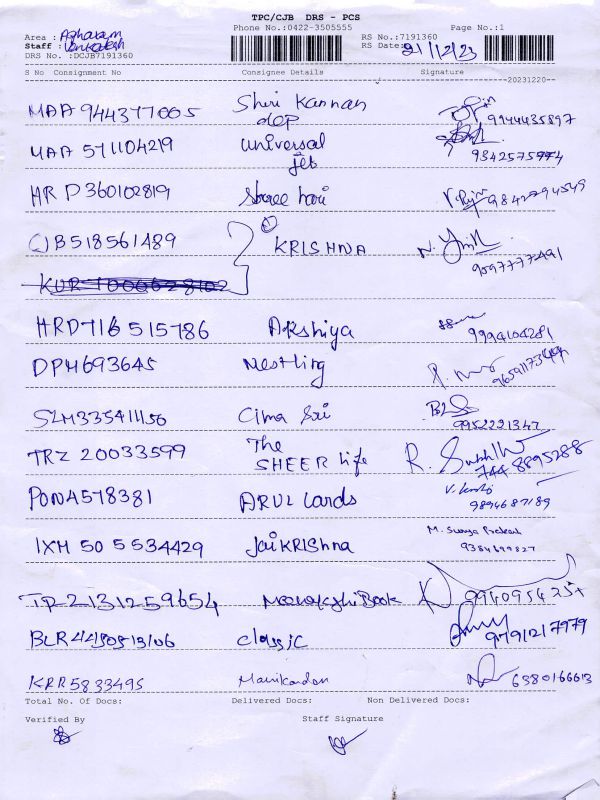 TPC/CJB DRS - PCS
Phone No.:0422-3505555 Page No.:1
Area : Agharam RS No.:7191360
Staff : Venkatesh RS Date: 21/12/23
DRS No. :DCJB7191360
S No Consignment No Consignee Details Signature
--20231220--
MAA 944377005 Shri Kannan
dep 9944435897
MAA 571104219 universal
jet 9342575974
HRD360102819 Sbree hari 9842794549
CJB518561489 KRISHNA 9597777491
HRD716 515786 Akshiya 9994104281
DPM693645 Nestling
SLM335411156 Cima Sri 9952221347
TRZ 20033599 The
SHEER life 744 8895288
PON4578381 ARUL Cards 9894687189
IXM 50 5 534429 JaiKRIShna M. Surya Prakash
9384699827
TRZ131259654 Meenakshi Book 9940954254
BLR44150513106 classic 9791217979
KRR5833495 Manikandan 6380166613
Total No. Of Docs: Delivered Docs: Non Delivered Docs:
Verified By Staff Signature